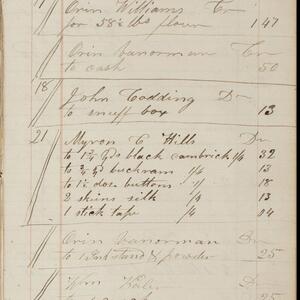 Orin Williams Cr
for 58½ lbs flour 1 47
Orin Vanorman Cr
to cash 50
18
John Codding Dr
to snuff box 13
21
Myron C Hills Dr
to yds black cambrick 1/6 32
to ¾ yd buckram 1/6 13
to 1½ dos buttons 18
2 skins silk 13
1 stick tape 04
Orin Vanorman Dr
to 1 Inkstand & powder 25
Wm
25